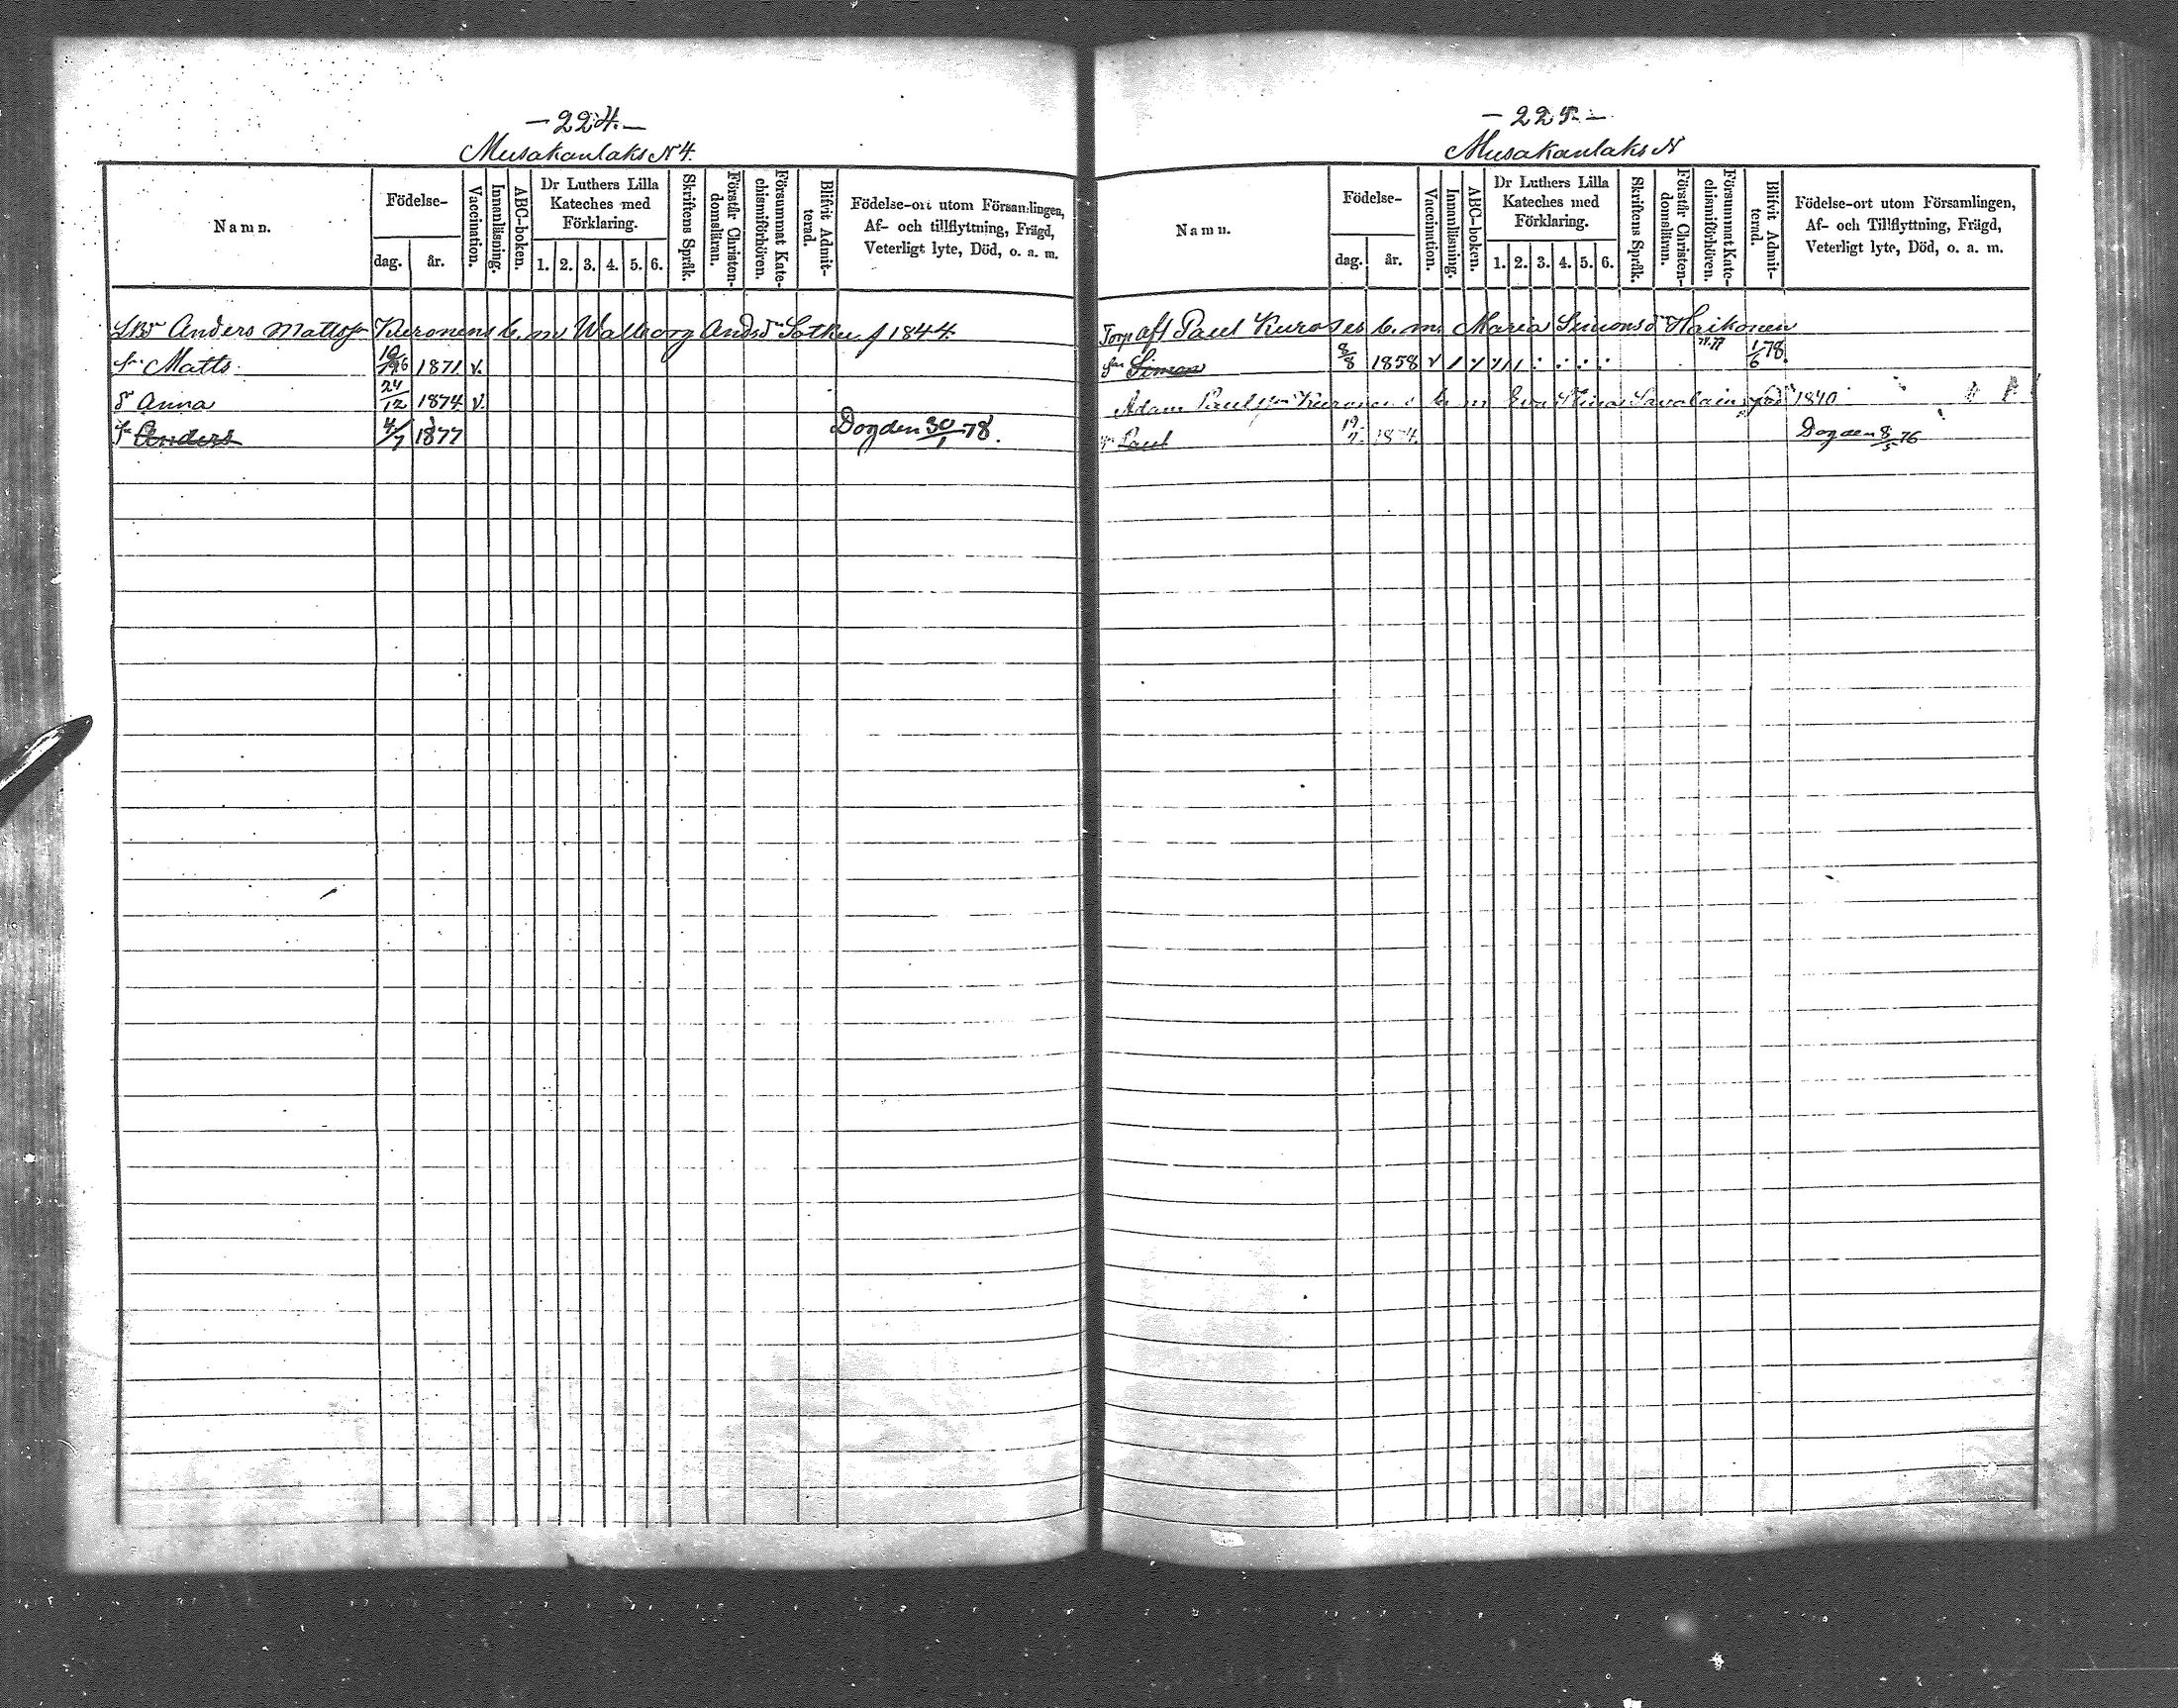 — 224. —
Musakanlaks N 4.
Namn.
Födelse-
dag.
år.
Vaccination.
Innanläsning.
ABC-boken.
Dr Luthers Lilla
Kateches med
Förklaring.
1. 2. 3. 4. 5. 6.
Skriftens Språk.
Förstår Christen-
domsläran.
Försummat Kate-
chismiförhören.
Blifvit Admit-
terad.
Födelse-ort utom Församlingen,
Af- och tillflyttning, Frägd,
Veterligt lyte, Död, o. a. m.
Anders Mattss Kuronens b. m Walborg Andsdr Sotku f 1844.
sn Matts 1871 v.
dr Anna 24/12 1874 v.
sn Anders 4/7 1877 Dog den 30/1 78.
— 225. —
Musakanlaks N
Namn.
Födelse-
dag.
år.
Vaccination.
Innanläsning.
ABC-boken.
Dr Luthers Lilla
Kateches med
Förklaring.
1. 2. 3. 4. 5. 6.
Skriftens Språk.
Förstår Christen-
domsläran.
Försummat Kate-
chismiförhören.
Blifvit Admit-
terad.
Födelse-ort utom Församlingen,
Af- och Tillflyttning, Frägd,
Veterligt lyte, Död, o. a. m.
Torp aft Paul Kuroses b. m. Maria Simonsdr Haikonen
sn Simon 8/8 1858 v 1/6 78.
Adam Paulss Kuronen b m Eva Stina Savolain född 1840
sn Paul 1874 Dog den 8/5 76